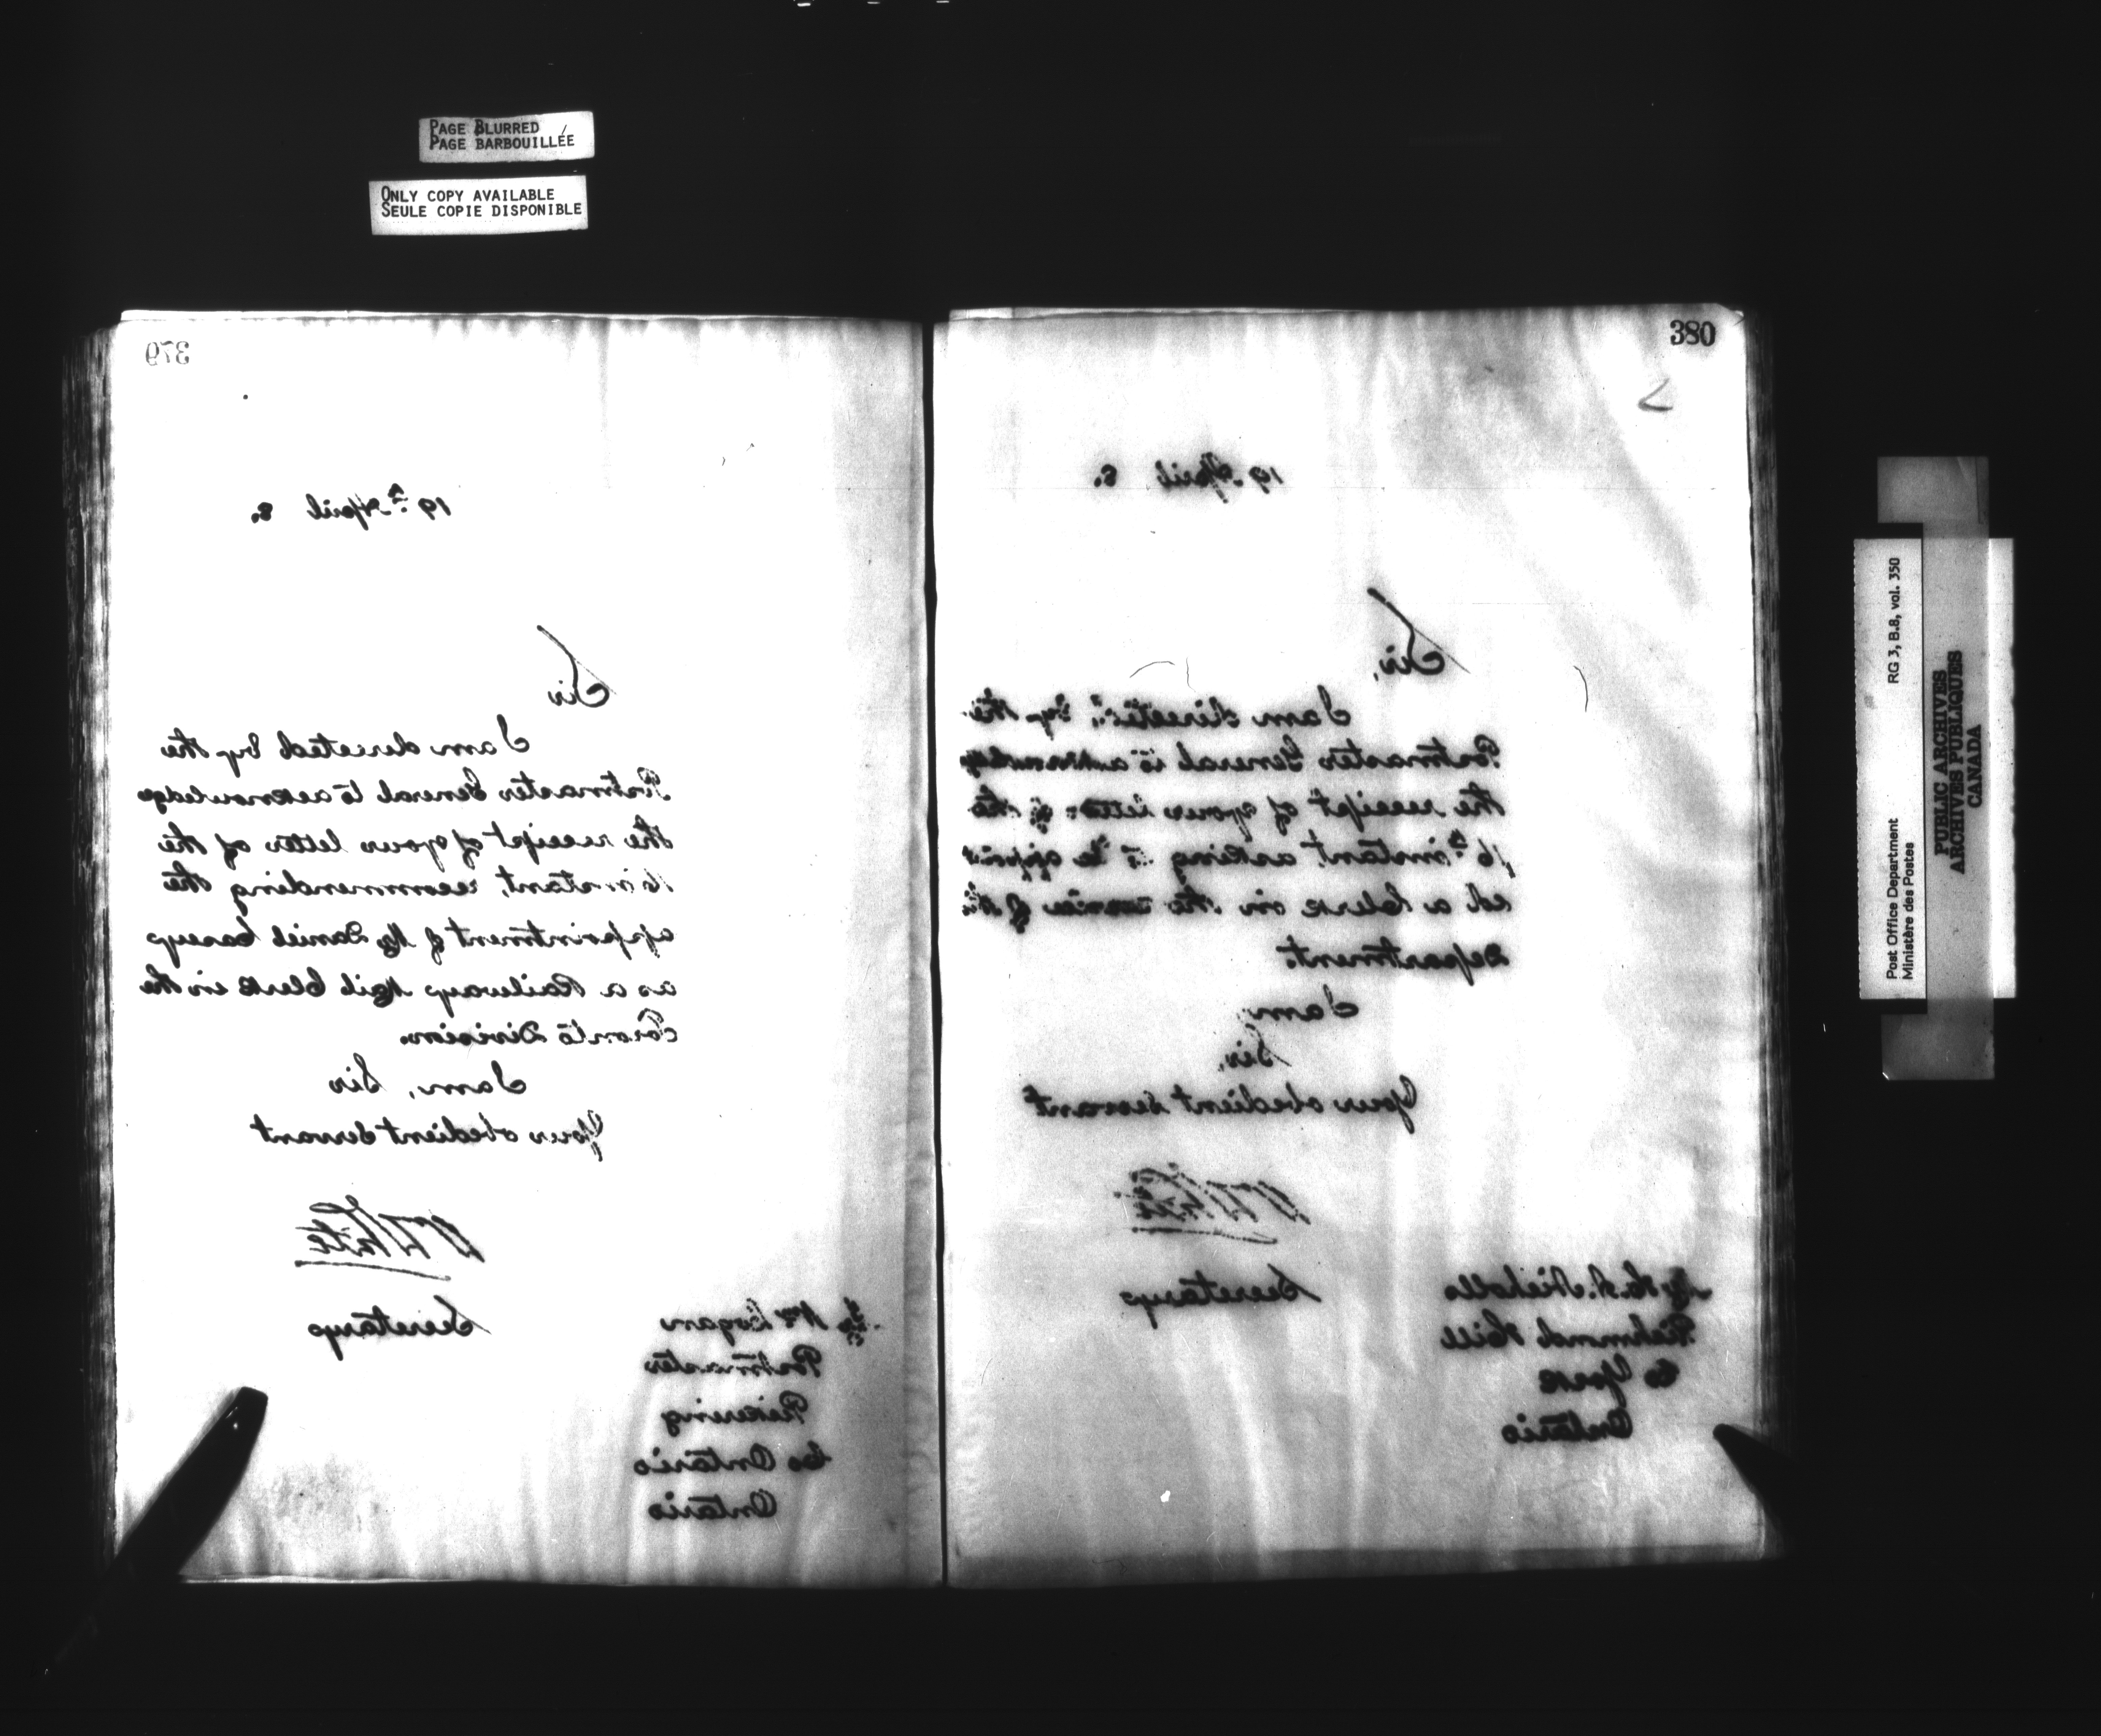 PAGE BLURRED
PAGE BARBOUILLÉE
ONLY COPY AVAILABLE
SEULE COPIE DISPONIBLE
379
19th April 8.
Sir
I am directed by the
Postmaster General to acknowledge
the receipt of your letter of the
16 instant, recommending the
appointment of Mr Daniel Casey
as a Railway Mail Clerk in the
Toronto Division.
I am, Sir
Your obedient Servant
W White
Secretary
Logan
Postmaster
Pickering
Co Ontario
Ontario
380
19 April 8.
Sir,
I am directed by the
Postmaster General to acknowledge
the receipt of your letter of the
16th instant asking to be appoint
ed a Clerk in the service of the
Department.
I am
Sir,
Your obedient servant
W White
Secretary
Mr H. A. Nicholls
Richmond Hill
Co York
Ontario
Post Office Department
Ministère des Postes
RG 3, B.8, vol. 350
PUBLIC ARCHIVES
ARCHIVES PUBLIQUES
CANADA